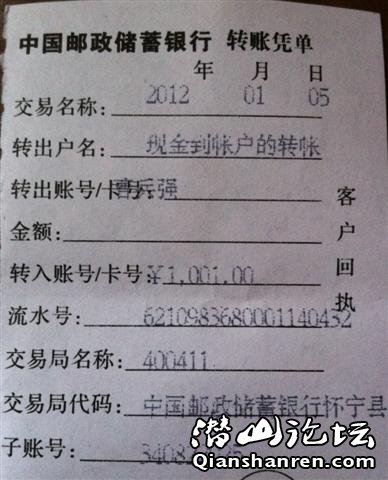 中国邮政储蓄银行 转账凭单
年 月 日
2012 01 05
交易名称:
转出户名: 现金到帐户的转帐
转出账号/卡号: 曹兵强
金额:
转入账号/卡号: ￥1,001.00
流水号: 6210983680001140432
交易局名称: 400411
交易局代码: 中国邮政储蓄银行怀宁县
子账号: 3408
客户回执
潜山论坛
Qianshanren.com